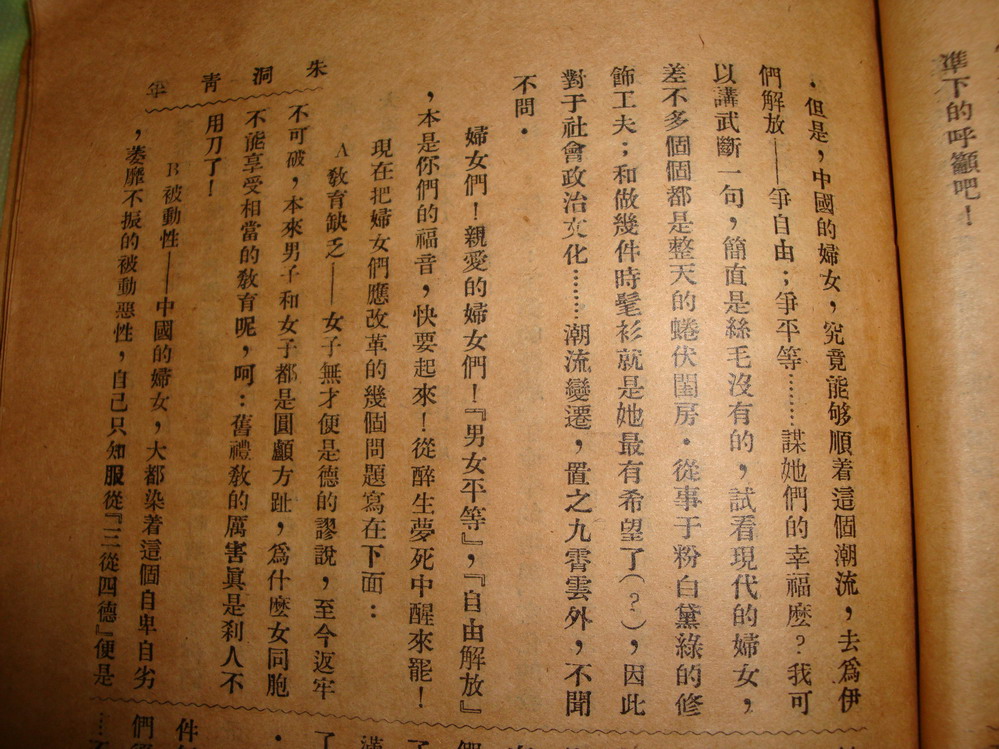 準下的呼籲吧！
．但是，中國的婦女，究竟能够順着這個潮流，去爲伊
們解放——爭自由；爭平等………謀她們的幸福麼？我可
以講武斷一句，簡直是絲毛沒有的，試看現代的婦女，
差不多個個都是整天的蜷伏閨房．從事于粉白黛綠的修
飾工夫；和做幾件時髦衫就是她最有希望了（？），因此
對于社會政治文化………潮流變遷，置之九霄雲外，不聞
不問．
婦女們！親愛的婦女們！『男女平等』，『自由解放』
，本是你們的福音，快要起來！從醉生夢死中醒來罷！
現在把婦女們應改革的幾個問題寫在下面：
A 教育缺乏——女子無才便是德的謬說，至今返牢
不可破，本來男子和女子都是圓顱方趾，爲什麼女同胞
不能享受相當的教育呢，呵：舊禮教的厲害眞是刹人不
用刀了！
B 被動性——中國的婦女，大都染着這個自卑自劣
，萎靡不振的被動惡性，自己只知服從『三從四德』便是
朱洞青年
件
們